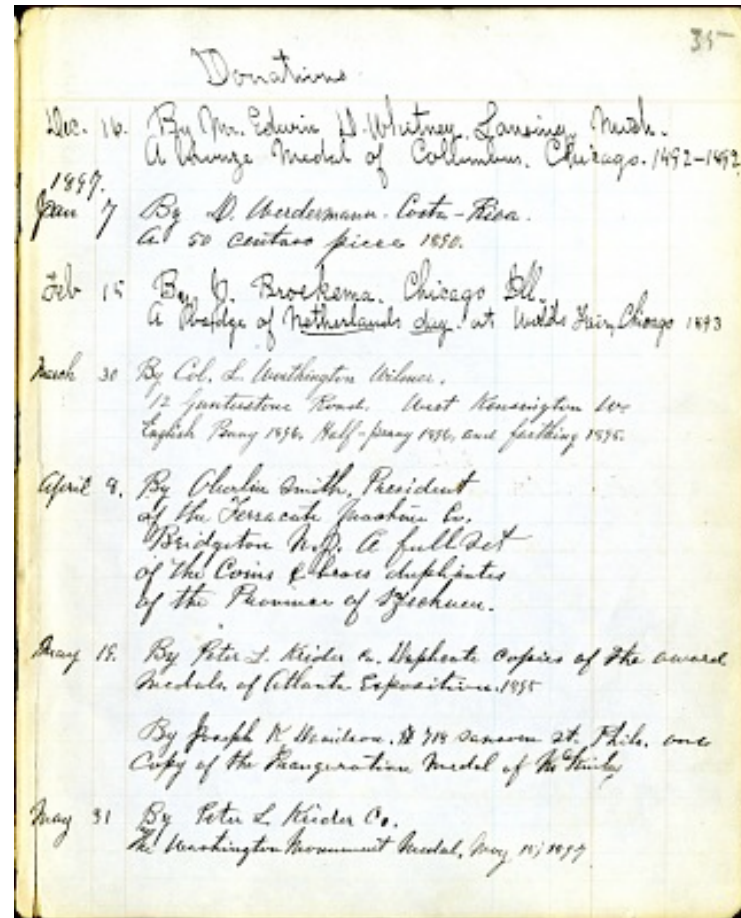 35
Donations
Dec. 16. By Mr. Edwin D. Whitney. Lansing, Mich.
A bronze Medal of Columbus. Chicago. 1492-1892
1897.
Jan 7 By D. Werdermann. Costa-Rica.
A 50 centavo piece 1890.
Feb 15 By J. Broekema. Chicago Ill.
A Badge of Netherlands day. at Worlds Fair, Chicago 1893
March 30 By Col. L. Worthington Wilmer.
12 Gunterstone Road. West Kensington W.
English Penny 1896. Half-penny 1896, and farthing 1895.
April 8. By Oberlin Smith, President
of the Ferracute Machine Co.
Bridgeton N.J. A full set
of the Coins & brass duplicates
of the Province of Szechuen.
May 19. By Peter L. Krider Co. Duplicate copies of the award
medals of Atlanta Exposition. 1895
By Joseph K Davidson. 718 Sansom St. Phila. one
Copy of the Inauguration Medal of McKinley
May 31 By Peter L Krider Co.
The Washington Monument Medal, May 15, 1897